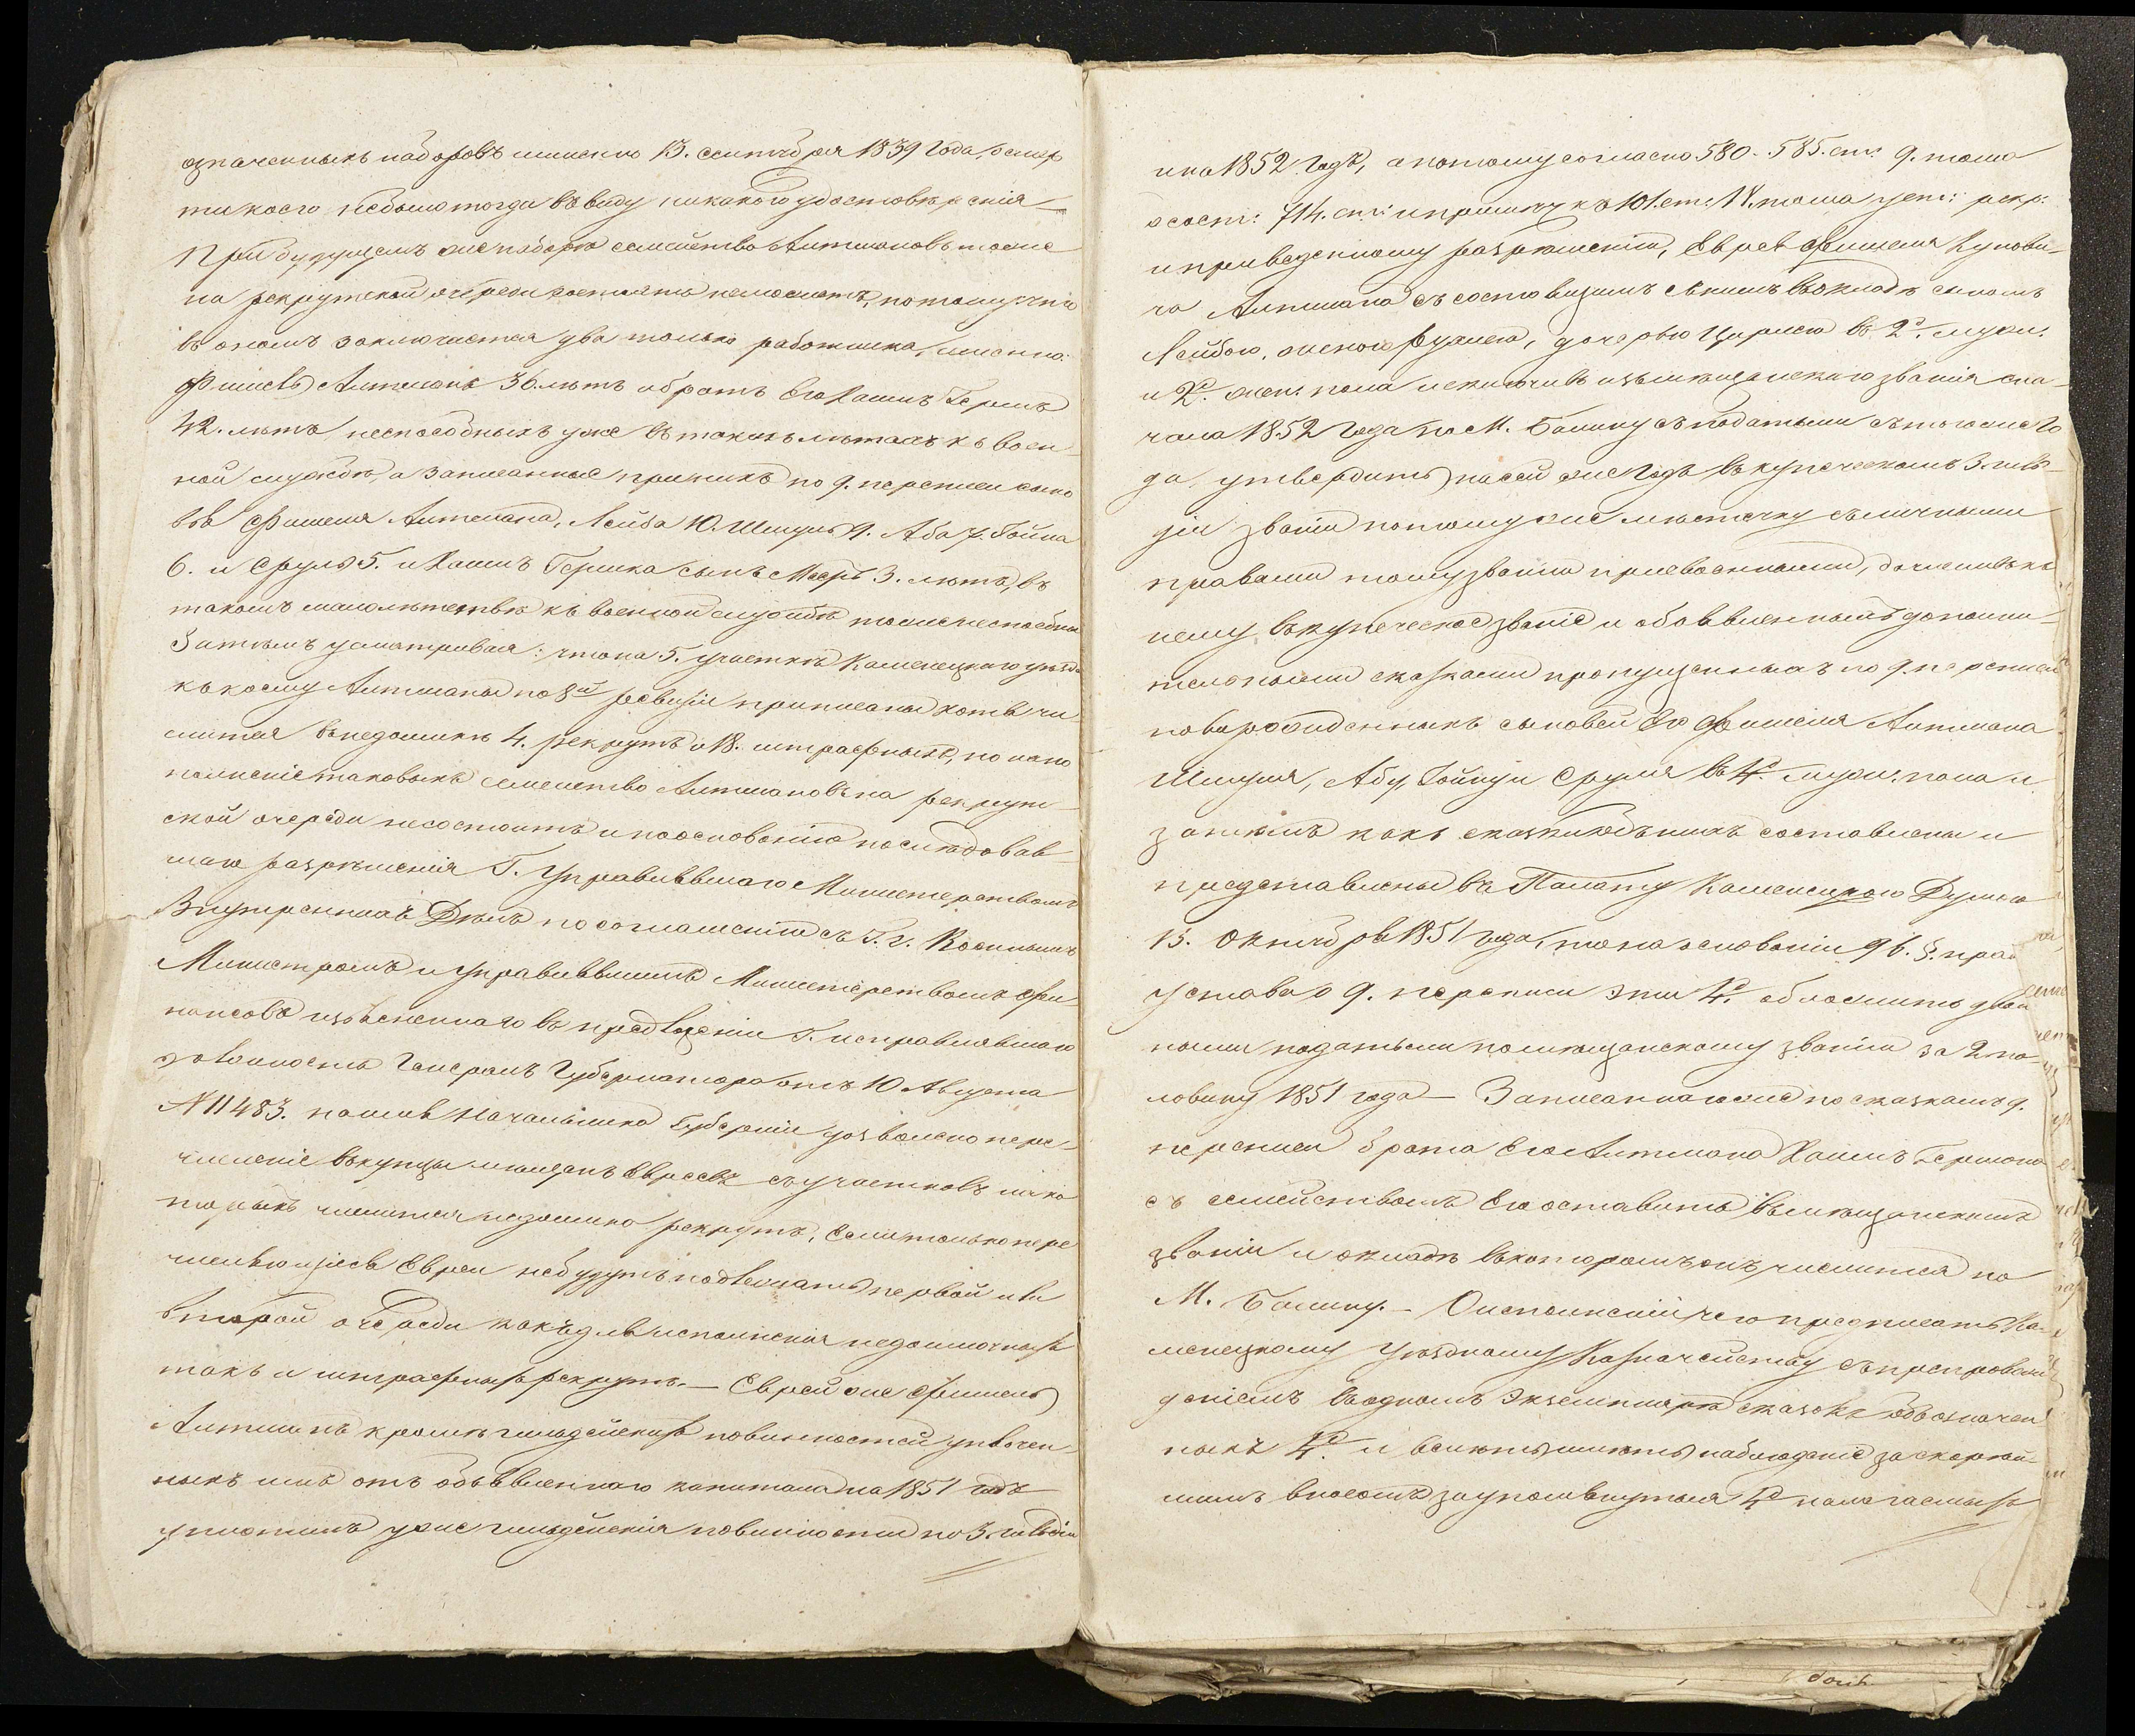 означенныхъ наборовъ именно 13. сентября 1839 года, о смер
ти коего небыло тогда въ виду никакого удостовѣренія —
При будущемъ же наборѣ семейство Литмановъ тоже
на рекрутской очереди состоять неможетъ, потому что
въ ономъ заключается два только работника, именно:
Фишель Литманъ 36 лѣтъ и братъ его Хаимъ Гершъ
42. лѣтъ, неспособныхъ уже въ такихъ лѣтахъ къ воен-
ной службѣ, а записанные при нихъ по 9. переписи сыно
вья Фишеля Литмана, Лейба 10. Шмуль 9. Аба 7. Йойна
6. и Сруль 5. и Хаимъ Гершка сынъ Мееръ 3. лѣтъ, въ
такомъ малолѣтствѣ къ военной службѣ тоже неспособны
Затѣмъ усматривая: что на 5. участкѣ Каменецкаго уѣзда
къ коему Литманы по 8й ревизіи приписаны хотя чи
слится въ недоимкѣ 4. рекрутъ и 18. штрафныхъ, но на по
полненіе таковыхъ семейство Литмановъ на рекрут-
ской очереди не состоитъ и по основанію послѣдовав-
шаго разрѣшенія Г. Управлявшаго Министерствомъ
Внутреннихъ Дѣлъ по соглашенію съ Г.г. Военнымъ
Министромъ и Управлявшимъ Министерствомъ Фи-
нансовъ изъясненнаго въ предложеніи Г. исправлявшаго
должность Генералъ Губернатора отъ 10 Августа
N 11483. на имя Начальника Губерніи дозволено пере-
численіе въ купцы мѣщанъ Евреевъ съ участковъ на ко
торыхъ числится недоимка рекрутъ, если только пере
числяющіеся Евреи небудутъ подлежать первой или
второй очереди какъ для исполненія недоимочныхъ
такъ и штрафныхъ рекрутъ. — Еврей же Фишель
Литманъ кромѣ гильдейскихъ повинностей уплочен-
ныхъ имъ отъ объявленнаго капитала на 1851 годъ
уплотилъ уже гильдейскія повинности по 3. гильдіи
и на 1852 годъ, а потому согласно 580. 585. ст. 9. тома
о сост: 714. ст. и примеч: къ 101. ст. тома уст: рекр:
и приведенному разрѣшенію, Еврея Фишеля
ча Литмана съ состоящимъ съ нимъ въ окладѣ сыномъ
Лейбою, женою Рухлею, дочерью Цирлею въ 2х. муж.
и 2х. жен. пола исключивъ изъ мѣщанскаго званія съ на-
чала 1852 года по М. Балину съ податьми съ того же го
да, утвердить на сей же годъ въ купеческомъ 3. гиль-
діи званіи по тому же мѣстечку съ личными
правами тому званію присвоенными, дочисливъ къ
нему въ купеческое званіе и объявленныхъ дополни-
тельными сказками пропущенныхъ по 9. переписи
новорожденныхъ сыновей его Фишеля Литмана
Шмуля, Абу, Йойну и Сруля въ 4х. муж. пола и
затѣмъ какъ сказки объ нихъ составлены и
представлены въ Палату Каменецкою Думою
13. Октября 1851 года, то на основаніи 96. §. прав
устава о 9. переписи эти 4х. обложить двой
ными податьми по мѣщанскому званію за 2 по
ловину 1851 года — Записаннаго же по сказкамъ 9.
переписи брата его Литмана Хаимъ Гершка
съ семействомъ его оставить въ мѣщанскомъ
званіи и окладѣ въ которомъ онъ числится по
М. Балину. — О исполненіи чего предписать Ка-
менецкому Уѣздному Казначейству съ препровож
деніемъ въ одномъ экземплярѣ сказокъ объ означен
ныхъ 4х. и велѣть имѣть наблюденіе за скорѣй-
шимъ взносомъ за упомянутыя 4х. налогаемыхъ